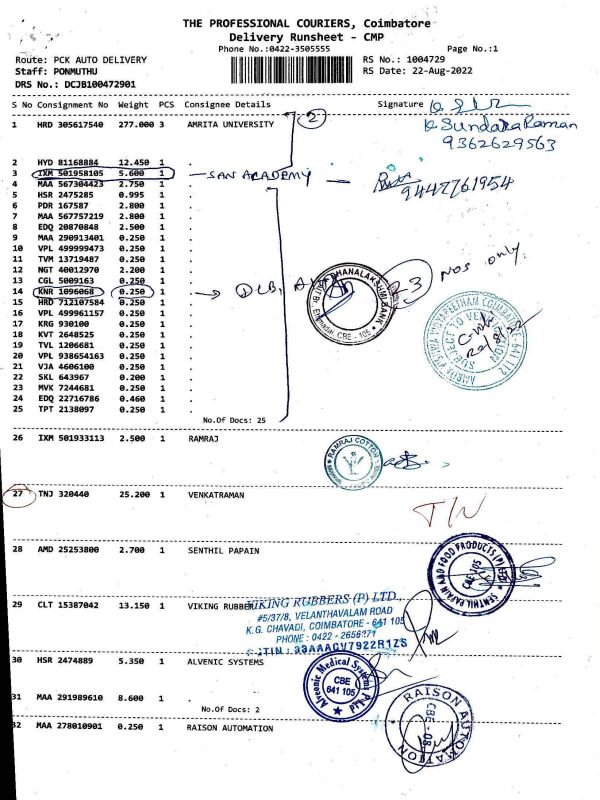 THE PROFESSIONAL COURIERS, Coimbatore
Delivery Runsheet - CMP
Phone No.:0422-3505555
Page No.:1
Route: PCK AUTO DELIVERY
RS No.: 1004729
Staff: PONMUTHU
RS Date: 22-Aug-2022
DRS No.: DCJB100472901
S No Consignment No Weight PCS Consignee Details Signature
1 HRD 305617540 277.000 3 AMRITA UNIVERSITY
2
K Sundara Raman
9362629563
2 HYD 81168884 12.450 1 .
3 IXM 501958105 5.600 1 . - SAN ACADEMY -
9442761954
4 MAA 567304423 2.750 1 .
5 HSR 2475285 0.995 1 .
6 PDR 167587 2.800 1 .
7 MAA 567757219 2.800 1 .
8 EDQ 20870848 2.500 1 .
9 MAA 290913401 0.250 1 .
10 VPL 499999473 0.250 1 .
11 TVM 13719487 0.250 1 .
12 NGT 40012970 2.200 1 .
13 CGL 5009163 0.250 1 .
14 KNR 1096068 0.250 1 . → DLB,
23 Nos only.
15 HRD 712107584 0.250 1 .
16 VPL 499961157 0.250 1 .
17 KRG 930100 0.250 1 .
18 KVT 2648525 0.250 1 .
19 TVL 1206681 0.250 1 .
20 VPL 938654163 0.250 1 .
21 VJA 4606100 0.250 1 .
22 SKL 643967 0.200 1 .
23 MVK 7244681 0.250 1 .
24 EDQ 22716786 0.460 1 .
25 TPT 2138097 0.250 1 .
No.Of Docs: 25
DHANALAKSHMI BANK
CBE - 105
AMRITA VISHWA VIDYAPEETHAM COIMBATORE - 641 112
SUBJECT TO VERIFICATION
26 IXM 501933113 2.500 1 RAMRAJ
RAMRAJ COTTON
27 TNJ 320440 25.200 1 VENKATRAMAN
T/N
28 AMD 25253800 2.700 1 SENTHIL PAPAIN
SENTHIL PAPAIN AND FOOD PRODUCTS (P)
CBE-105
29 CLT 15387042 13.150 1 VIKING RUBBER
VIKING RUBBERS (P) LTD.,
#5/37/8, VELANTHAVALAM ROAD
K.G. CHAVADI, COIMBATORE - 641 105
PHONE : 0422 - 2656271
GSTIN : 33AAACV7922R1ZS
30 HSR 2474889 5.350 1 ALVENIC SYSTEMS
Alvenic Medical Systems
CBE
641 105
31 MAA 291989610 8.600 1 .
No.Of Docs: 2
32 MAA 278010901 0.250 1 RAISON AUTOMATION
RAISON AUTOMATION